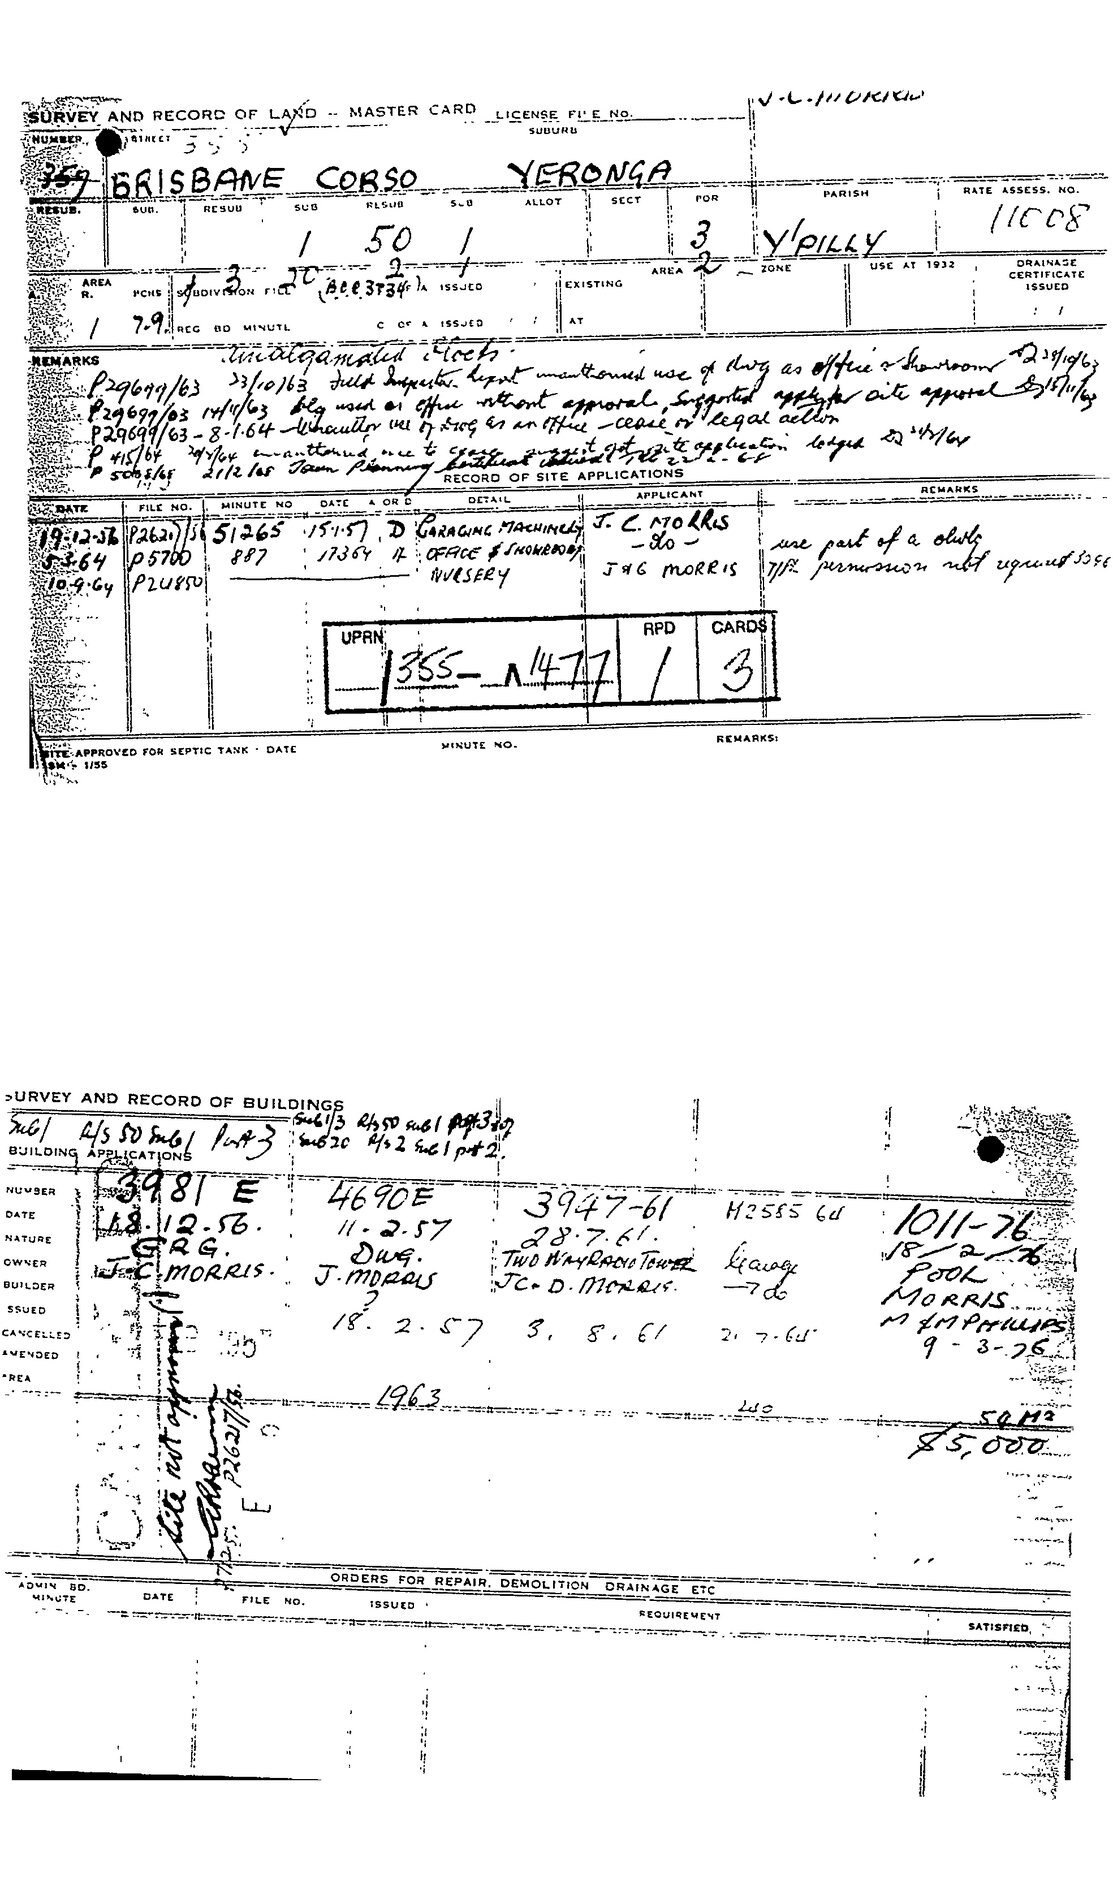 J. C. MORRIS
SURVEY AND RECORD OF LAND -- MASTER CARD LICENSE FILE NO.
NUMBER STREET SUBURB
355
359 BRISBANE CORSO YERONGA
RESUB. SUB. RESUB SUB RESUB SUB ALLOT SECT POR PARISH RATE ASSESS. NO.
1 50 1 3 Y'PILLY 11008
3 20 2 1 2
AREA SUBDIVISION FILE (BCC 3734) ISSUED EXISTING AREA ZONE USE AT 1932 DRAINAGE CERTIFICATE ISSUED
A. R. PCHS
1 7.9. REG BD MINUTE C OF A ISSUED AT
REMARKS Amalgamated Blocks.
P29699/63 23/10/63 Field Inspector Report unauthorised use of dwg as office & Showroom 23/10/63
P29699/63 14/11/63 Bldg used as office without approval, Suggested apply for site approval 15/11/63
P29699/63 - 8-1-64 - Unauthor use of Dwg as an office - cease or legal action
P 415/64 unauthorised use to cease site application lodged
21/2/68 Town Planning Certificate issued 22-2-68
RECORD OF SITE APPLICATIONS
DATE FILE NO. MINUTE NO DATE A OR D DETAIL APPLICANT REMARKS
19.12.56 P26217/56 51265 15.1.57 D GARAGING MACHINERY J. C. MORRIS
5-3-64 P5700 887 17364 A OFFICE & SHOWROOM - do - use part of a dwlg
10-9-64 P24850 NURSERY J & G MORRIS T/P permission not required
UPRN RPD CARDS
1355- 1477 1 3
SITE APPROVED FOR SEPTIC TANK - DATE MINUTE NO. REMARKS:
1/55
SURVEY AND RECORD OF BUILDINGS
Sub1 R/s 50 Sub1 Port 3 Sub1/3 R/s50 Sub1 por 3
Sub20 R/s 2 Sub 1 por 2.
BUILDING APPLICATIONS
NUMBER 3981 E 4690E 3947-61 M2585 64 1011-76
DATE 18.12.56. 11.2.57 28.7.61. 18/2/76
NATURE G R G. DWG. TWO WAY RADIO TOWER Garage POOL
OWNER J. C. MORRIS. J. MORRIS J C. D. MORRIS. - do MORRIS
BUILDER ? M & M PHILLIPS
ISSUED 18. 2. 57 3. 8. 61 2. 7. 64 9 - 3 - 76
CANCELLED
AMENDED
AREA 1963 240 50 M2
$5,000
Site not approved
P26217/56.
ORDERS FOR REPAIR. DEMOLITION DRAINAGE ETC
ADMIN BD. MINUTE DATE FILE NO. ISSUED REQUIREMENT SATISFIED